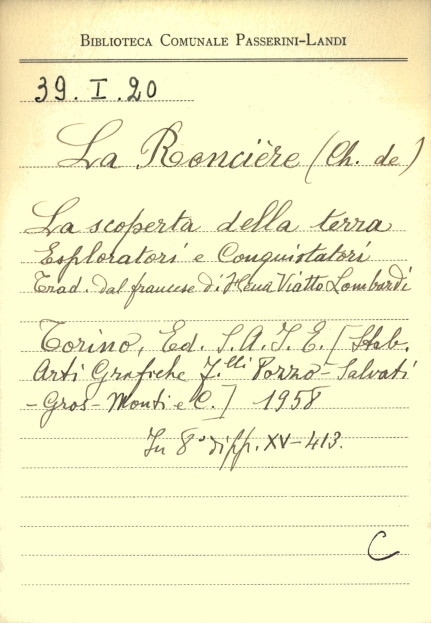 BIBLIOTECA COMUNALE PASSERINI-LANDI
39. I. 20
La Roncière (Ch. de)
La scoperta della terra
Esploratori e Conquistatori
Trad. dal francese di Viatto Lombardi
Torino, Ed. S. A. I. E. [Stab.
Arti Grafiche F.lli Pozzo-Salvati
-Gros-Monti e C.] 1958
In 8° di pp. XV-413.
C